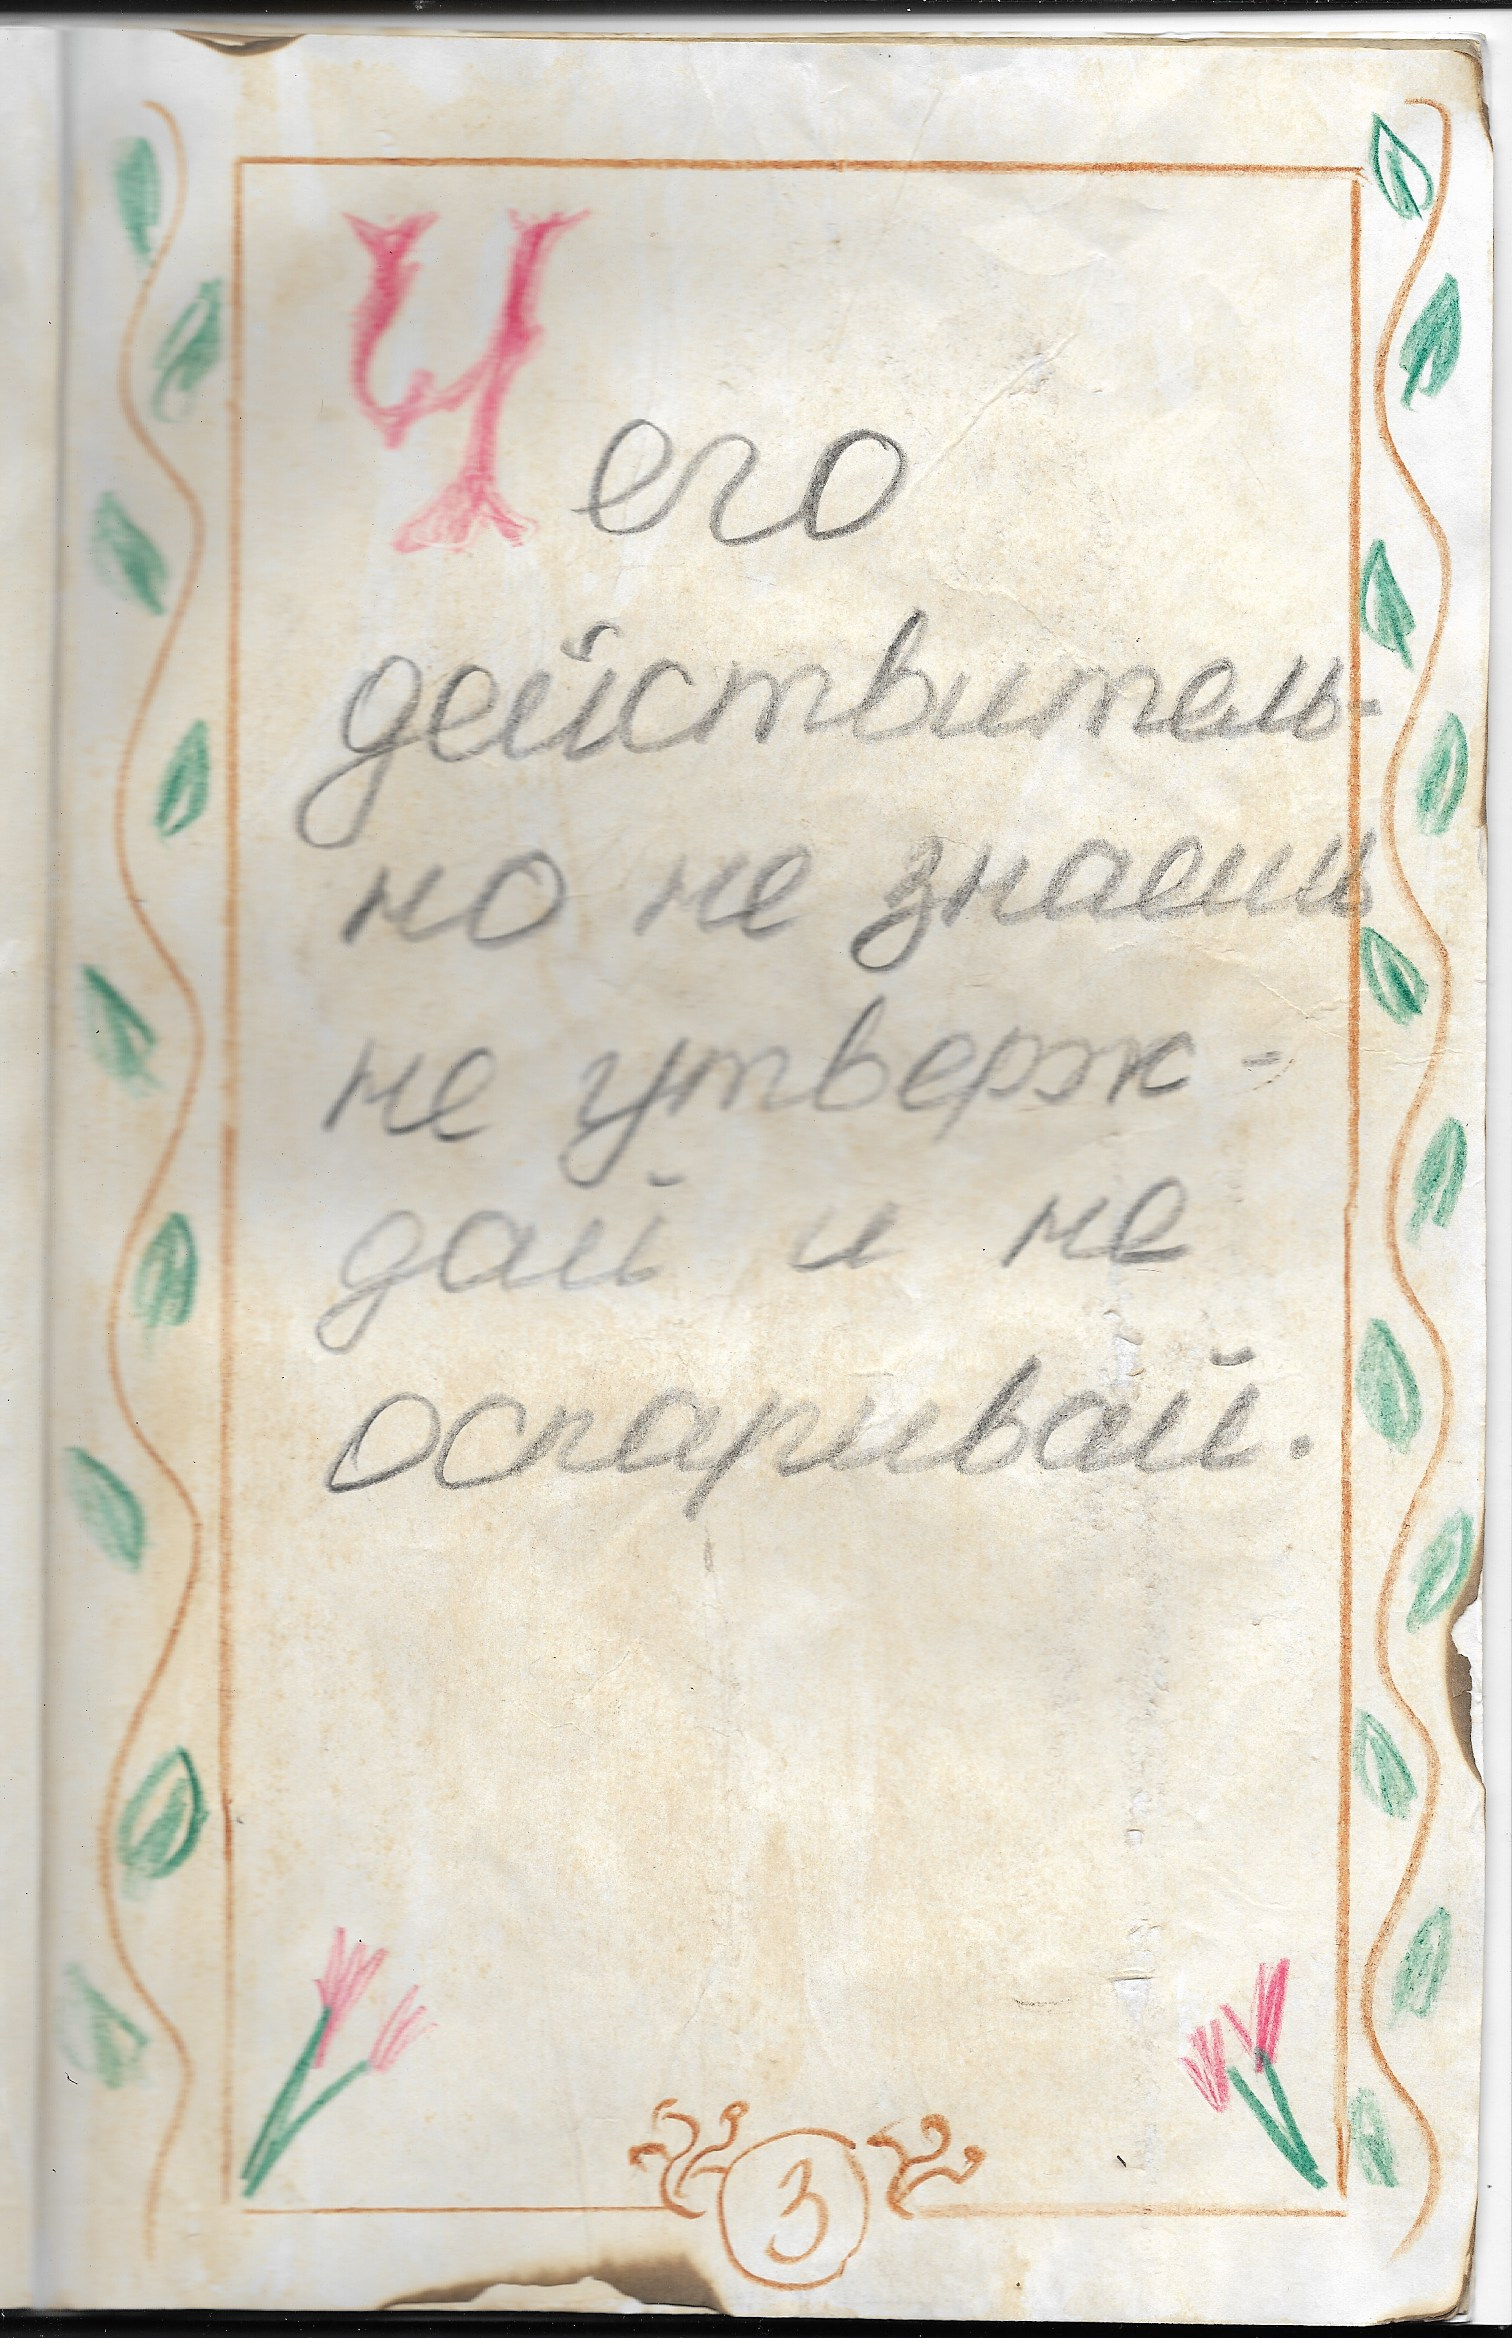 Чего
действитель-
но не знаешь
не утверж-
дай и не
оспаривай.
3